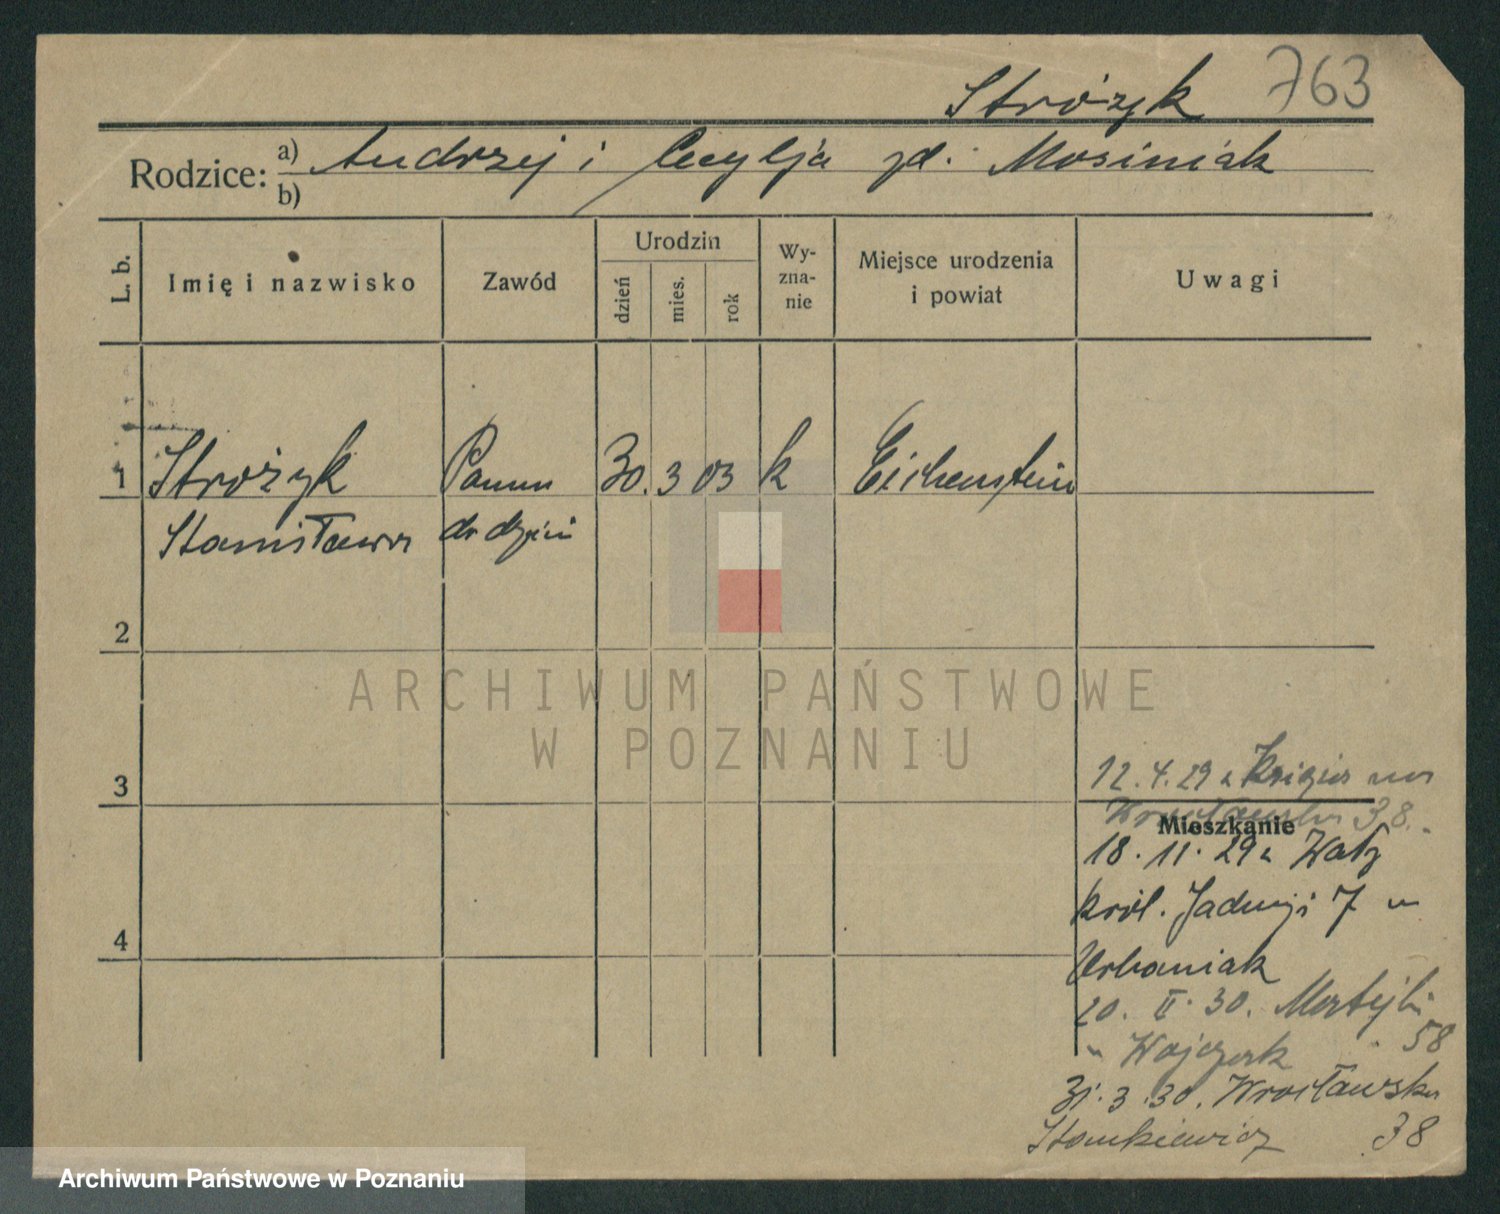 Stróżyk 763
Rodzice: a) Andrzej i Cecylja zd. Mosiniak
b)
L. b.
Imię i nazwisko
Zawód
Urodzin
dzień
mies.
rok
Wy-
zna-
nie
Miejsce urodzenia
i powiat
Uwagi
1 Strożyk Panna 30. 3 03 k Eichenstein
Stanisława do dzieci
2
ARCHIWUM PAŃSTWOWE
W POZNANIU
3
12.4.29
Wrocławska 38.
Mieszkanie
18.11.29
król. Jadwigi 7 u
Urbaniak
20. II. 30. Matejki
58
31.3.30. Wrocławska
Stankiewicz 38
4
Archiwum Państwowe w Poznaniu